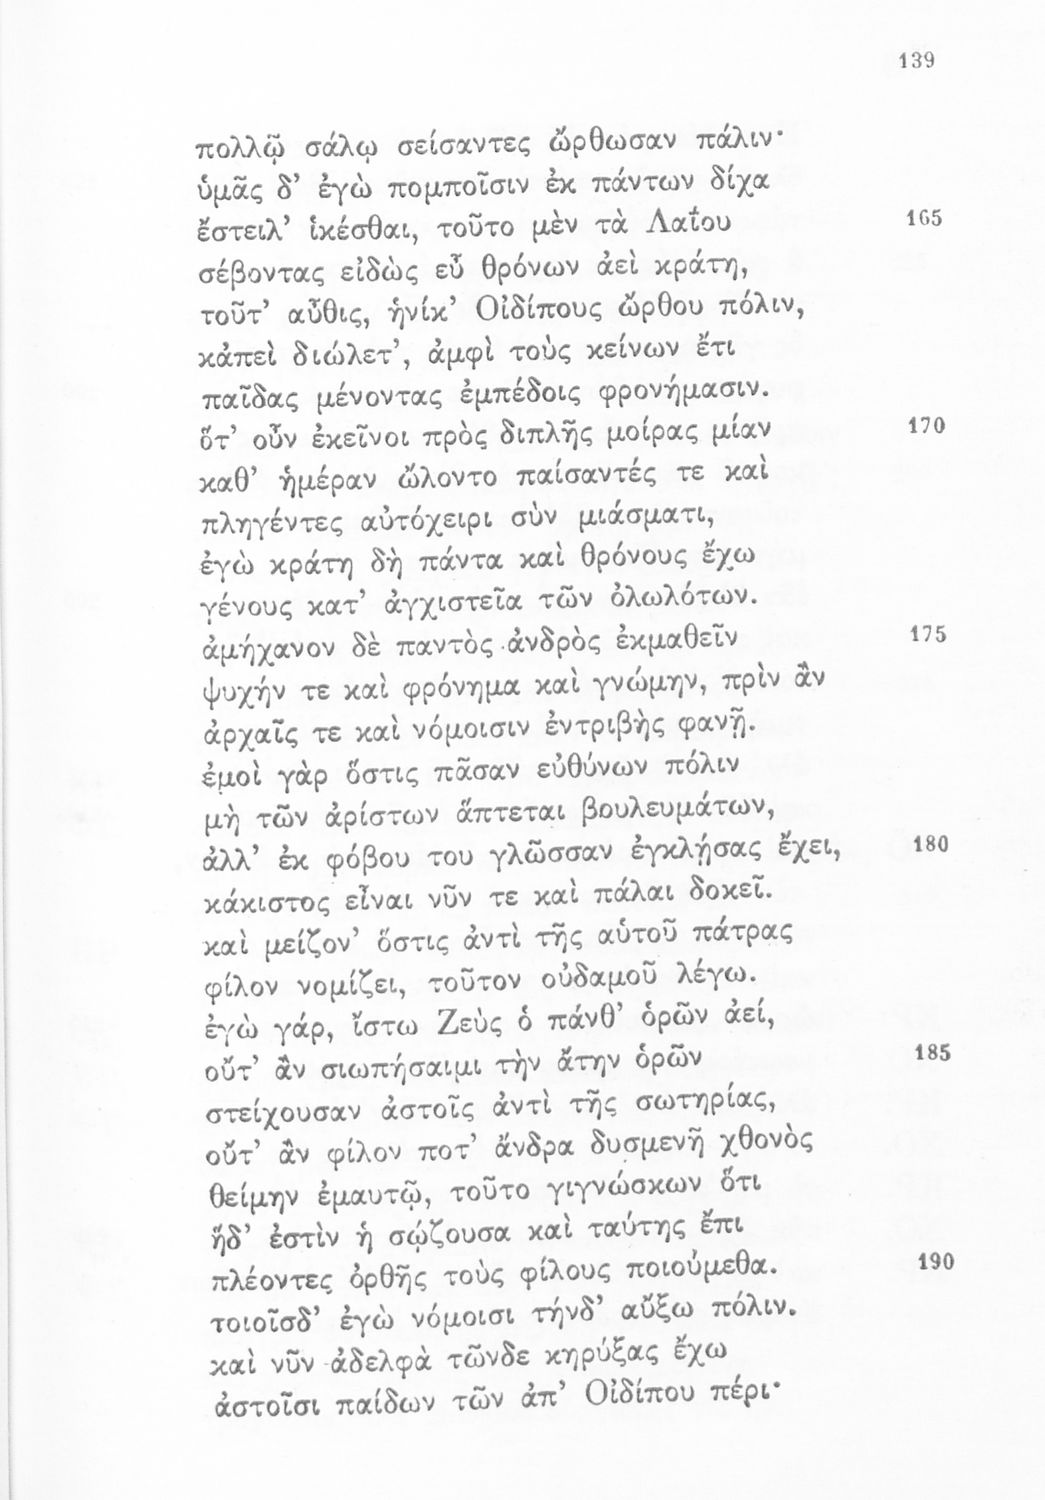 139
πολλῷ σάλῳ σείσαντες ὤρθωσαν πάλιν·
ὑμᾶς δ’ ἐγὼ πομποῖσιν ἐκ πάντων δίχα
ἔστειλ’ ἱκέσθαι, τοῦτο μὲν τὰ Λαΐου 165
σέβοντας εἰδὼς εὖ θρόνων ἀεὶ κράτη,
τοῦτ’ αὖθις, ἡνίκ’ Οἰδίπους ὤρθου πόλιν,
κἀπεὶ διώλετ’, ἀμφὶ τοὺς κείνων ἔτι
παῖδας μένοντας ἐμπέδοις φρονήμασιν.
ὅτ’ οὖν ἐκεῖνοι πρὸς διπλῆς μοίρας μίαν 170
καθ’ ἡμέραν ὤλοντο παίσαντές τε καὶ
πληγέντες αὐτόχειρι σὺν μιάσματι,
ἐγὼ κράτη δὴ πάντα καὶ θρόνους ἔχω
γένους κατ’ ἀγχιστεῖα τῶν ὀλωλότων.
ἀμήχανον δὲ παντὸς ἀνδρὸς ἐκμαθεῖν 175
ψυχήν τε καὶ φρόνημα καὶ γνώμην, πρὶν ἂν
ἀρχαῖς τε καὶ νόμοισιν ἐντριβὴς φανῇ.
ἐμοὶ γὰρ ὅστις πᾶσαν εὐθύνων πόλιν
μὴ τῶν ἀρίστων ἅπτεται βουλευμάτων,
ἀλλ’ ἐκ φόβου του γλῶσσαν ἐγκλῄσας ἔχει, 180
κάκιστος εἶναι νῦν τε καὶ πάλαι δοκεῖ.
καὶ μείζον’ ὅστις ἀντὶ τῆς αὑτοῦ πάτρας
φίλον νομίζει, τοῦτον οὐδαμοῦ λέγω.
ἐγὼ γάρ, ἴστω Ζεὺς ὁ πάνθ’ ὁρῶν ἀεί,
οὔτ’ ἂν σιωπήσαιμι τὴν ἄτην ὁρῶν 185
στείχουσαν ἀστοῖς ἀντὶ τῆς σωτηρίας,
οὔτ’ ἂν φίλον ποτ’ ἄνδρα δυσμενῆ χθονὸς
θείμην ἐμαυτῷ, τοῦτο γιγνώσκων ὅτι
ἥδ’ ἐστὶν ἡ σῴζουσα καὶ ταύτης ἔπι
πλέοντες ὀρθῆς τοὺς φίλους ποιούμεθα. 190
τοιοῖσδ’ ἐγὼ νόμοισι τήνδ’ αὔξω πόλιν.
καὶ νῦν ἀδελφὰ τῶνδε κηρύξας ἔχω
ἀστοῖσι παίδων τῶν ἀπ’ Οἰδίπου πέρι·